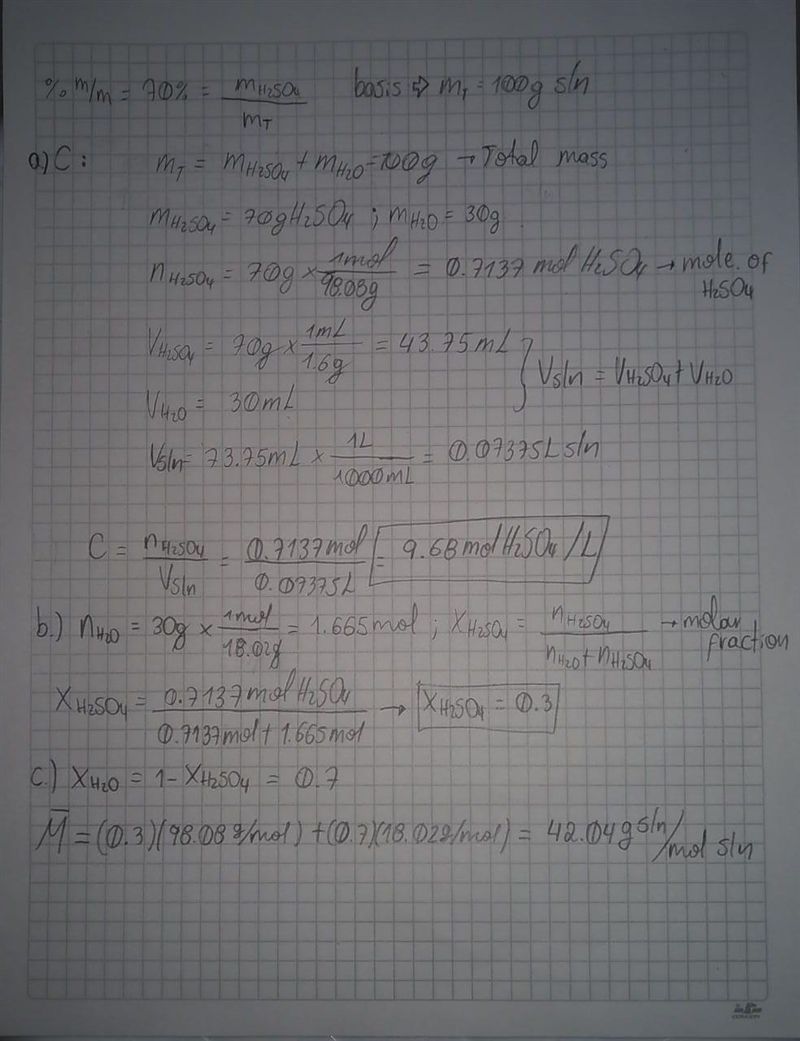 % m/m = 70% = mH₂SO₄ / mT basis ⇒ mT = 100g sln
a) C: mT = mH₂SO₄ + mH₂O = 100g → Total mass
mH₂SO₄ = 70gH₂SO₄ ; mH₂O = 30g
nH₂SO₄ = 70g × 1mol / 98.08g = 0.7137 mol H₂SO₄ → mole. of H₂SO₄
VH₂SO₄ = 70g × 1mL / 1.6g = 43.75mL
VH₂O = 30mL } Vsln = VH₂SO₄ + VH₂O
Vsln = 73.75mL × 1L / 1000mL = 0.07375L sln
C = nH₂SO₄ / Vsln = 0.7137mol / 0.07375L = 9.68molH₂SO₄/L
b.) nH₂O = 30g × 1mol / 18.02g = 1.665mol ; XH₂SO₄ = nH₂SO₄ / nH₂O + nH₂SO₄ → molar fraction
XH₂SO₄ = 0.7137molH₂SO₄ / 0.7137mol + 1.665mol → XH₂SO₄ = 0.3
c.) XH₂O = 1 - XH₂SO₄ = 0.7
M̅ = (0.3)(98.08g/mol) + (0.7)(18.02g/mol) = 42.04g sln/mol sln